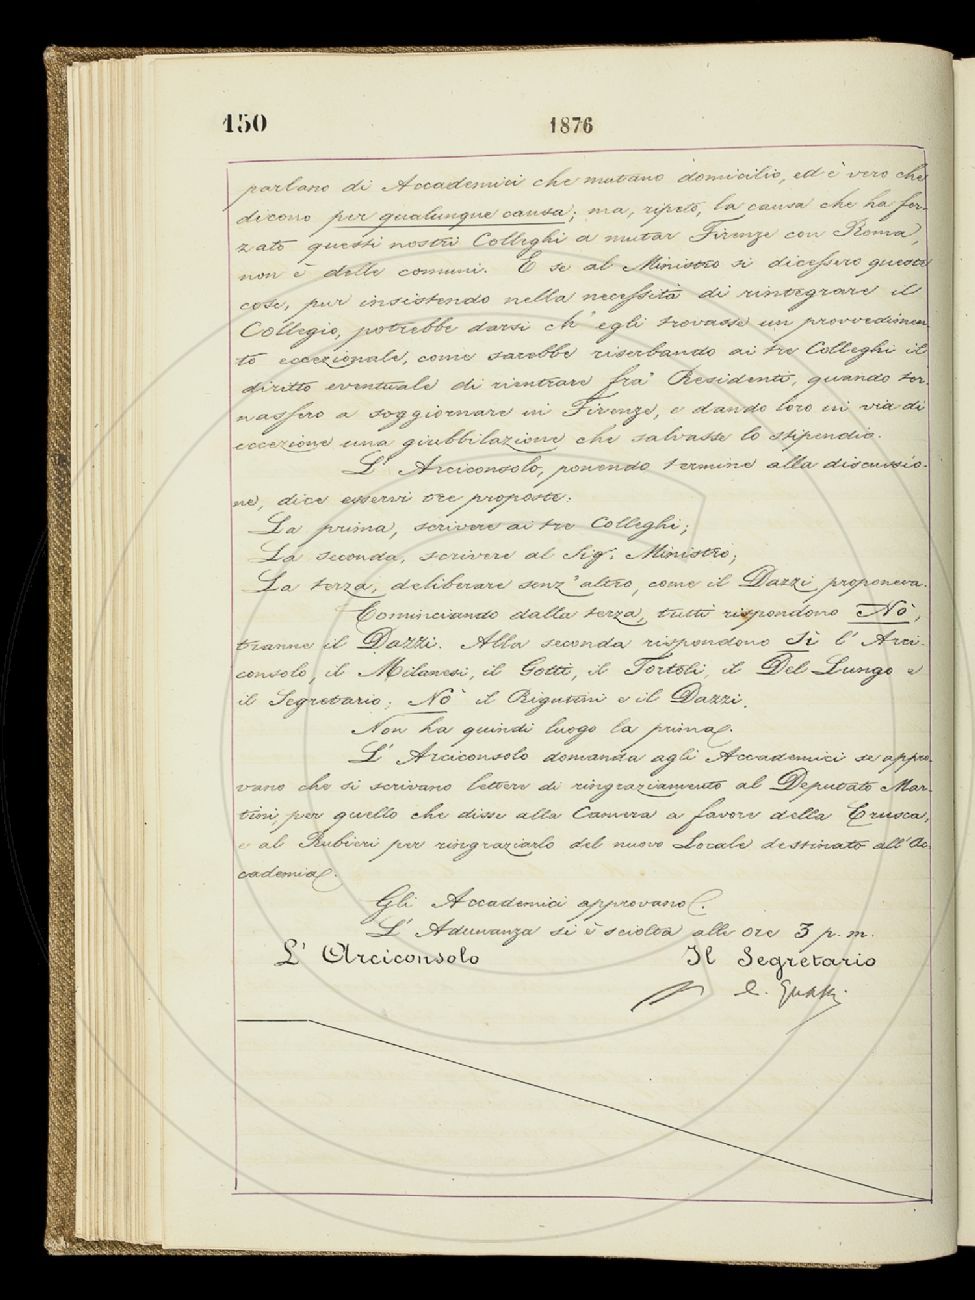 150
1876
parlano di Accademici che mutano domicilio, ed è vero che
dicono per qualunque causa; ma, ripeto, la causa che ha for-
zato questi nostri Colleghi a mutar Firenze con Roma,
non è delle comuni. E se al Ministro si dicessero queste
cose, pur insistendo nella necessità di rintegrare il
Collegio, potrebbe darsi ch'egli trovasse un provvedimen
to eccezionale, come sarebbe riserbando ai tre Colleghi il
diritto eventuale di rientrare fra' Residenti, quando tor-
nassero a soggiornare in Firenze, e dando loro in via di
eccezione una giubbilazione che salvasse lo stipendio.
L'Arciconsolo, ponendo termine alla discussio-
ne, dice esservi tre proposte.
La prima, scrivere ai tre Colleghi;
La seconda, scrivere al Sig. Ministro;
La terza, deliberare senz'altro, come il Dazzi proponeva.
Cominciando dalla terza, tutti rispondono Nò,
tranne il Dazzi. Alla seconda rispondono Sì l'Arci-
consolo, il Milanesi, il Gotti, il Tortoli, il Del Lungo e
il Segretario; Nò il Rigutini e il Dazzi.
Non ha quindi luogo la prima.
L'Arciconsolo domanda agli Accademici se appro-
vano che si scrivano lettere di ringraziamento al Deputato Mar-
tini per quello che disse alla Camera a favore della Crusca,
e al Rubieri per ringraziarlo del nuovo Locale destinato all'Ac-
cademia.
Gli Accademici approvano.
L'Adunanza si è sciolta alle ore 3 p. m.
L'Arciconsolo Il Segretario
C. Guasti